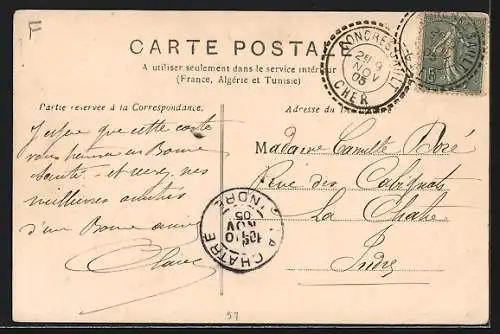 F
CARTE POSTALE
A utiliser seulement dans le service intérieur
(France, Algérie et Tunisie)
Partie réservée à la Correspondance.
Adresse du
J'espère que cette carte
vous trouvera en Bonne
Santé. et recevez mes
meilleures amitiés
d'une Bonne amie
Claire
Madame Camille Doré
Rue des
La Chatre
Indre
CHER
28
NOV
05
LA CHATRE
INDRE
NOV
05
57